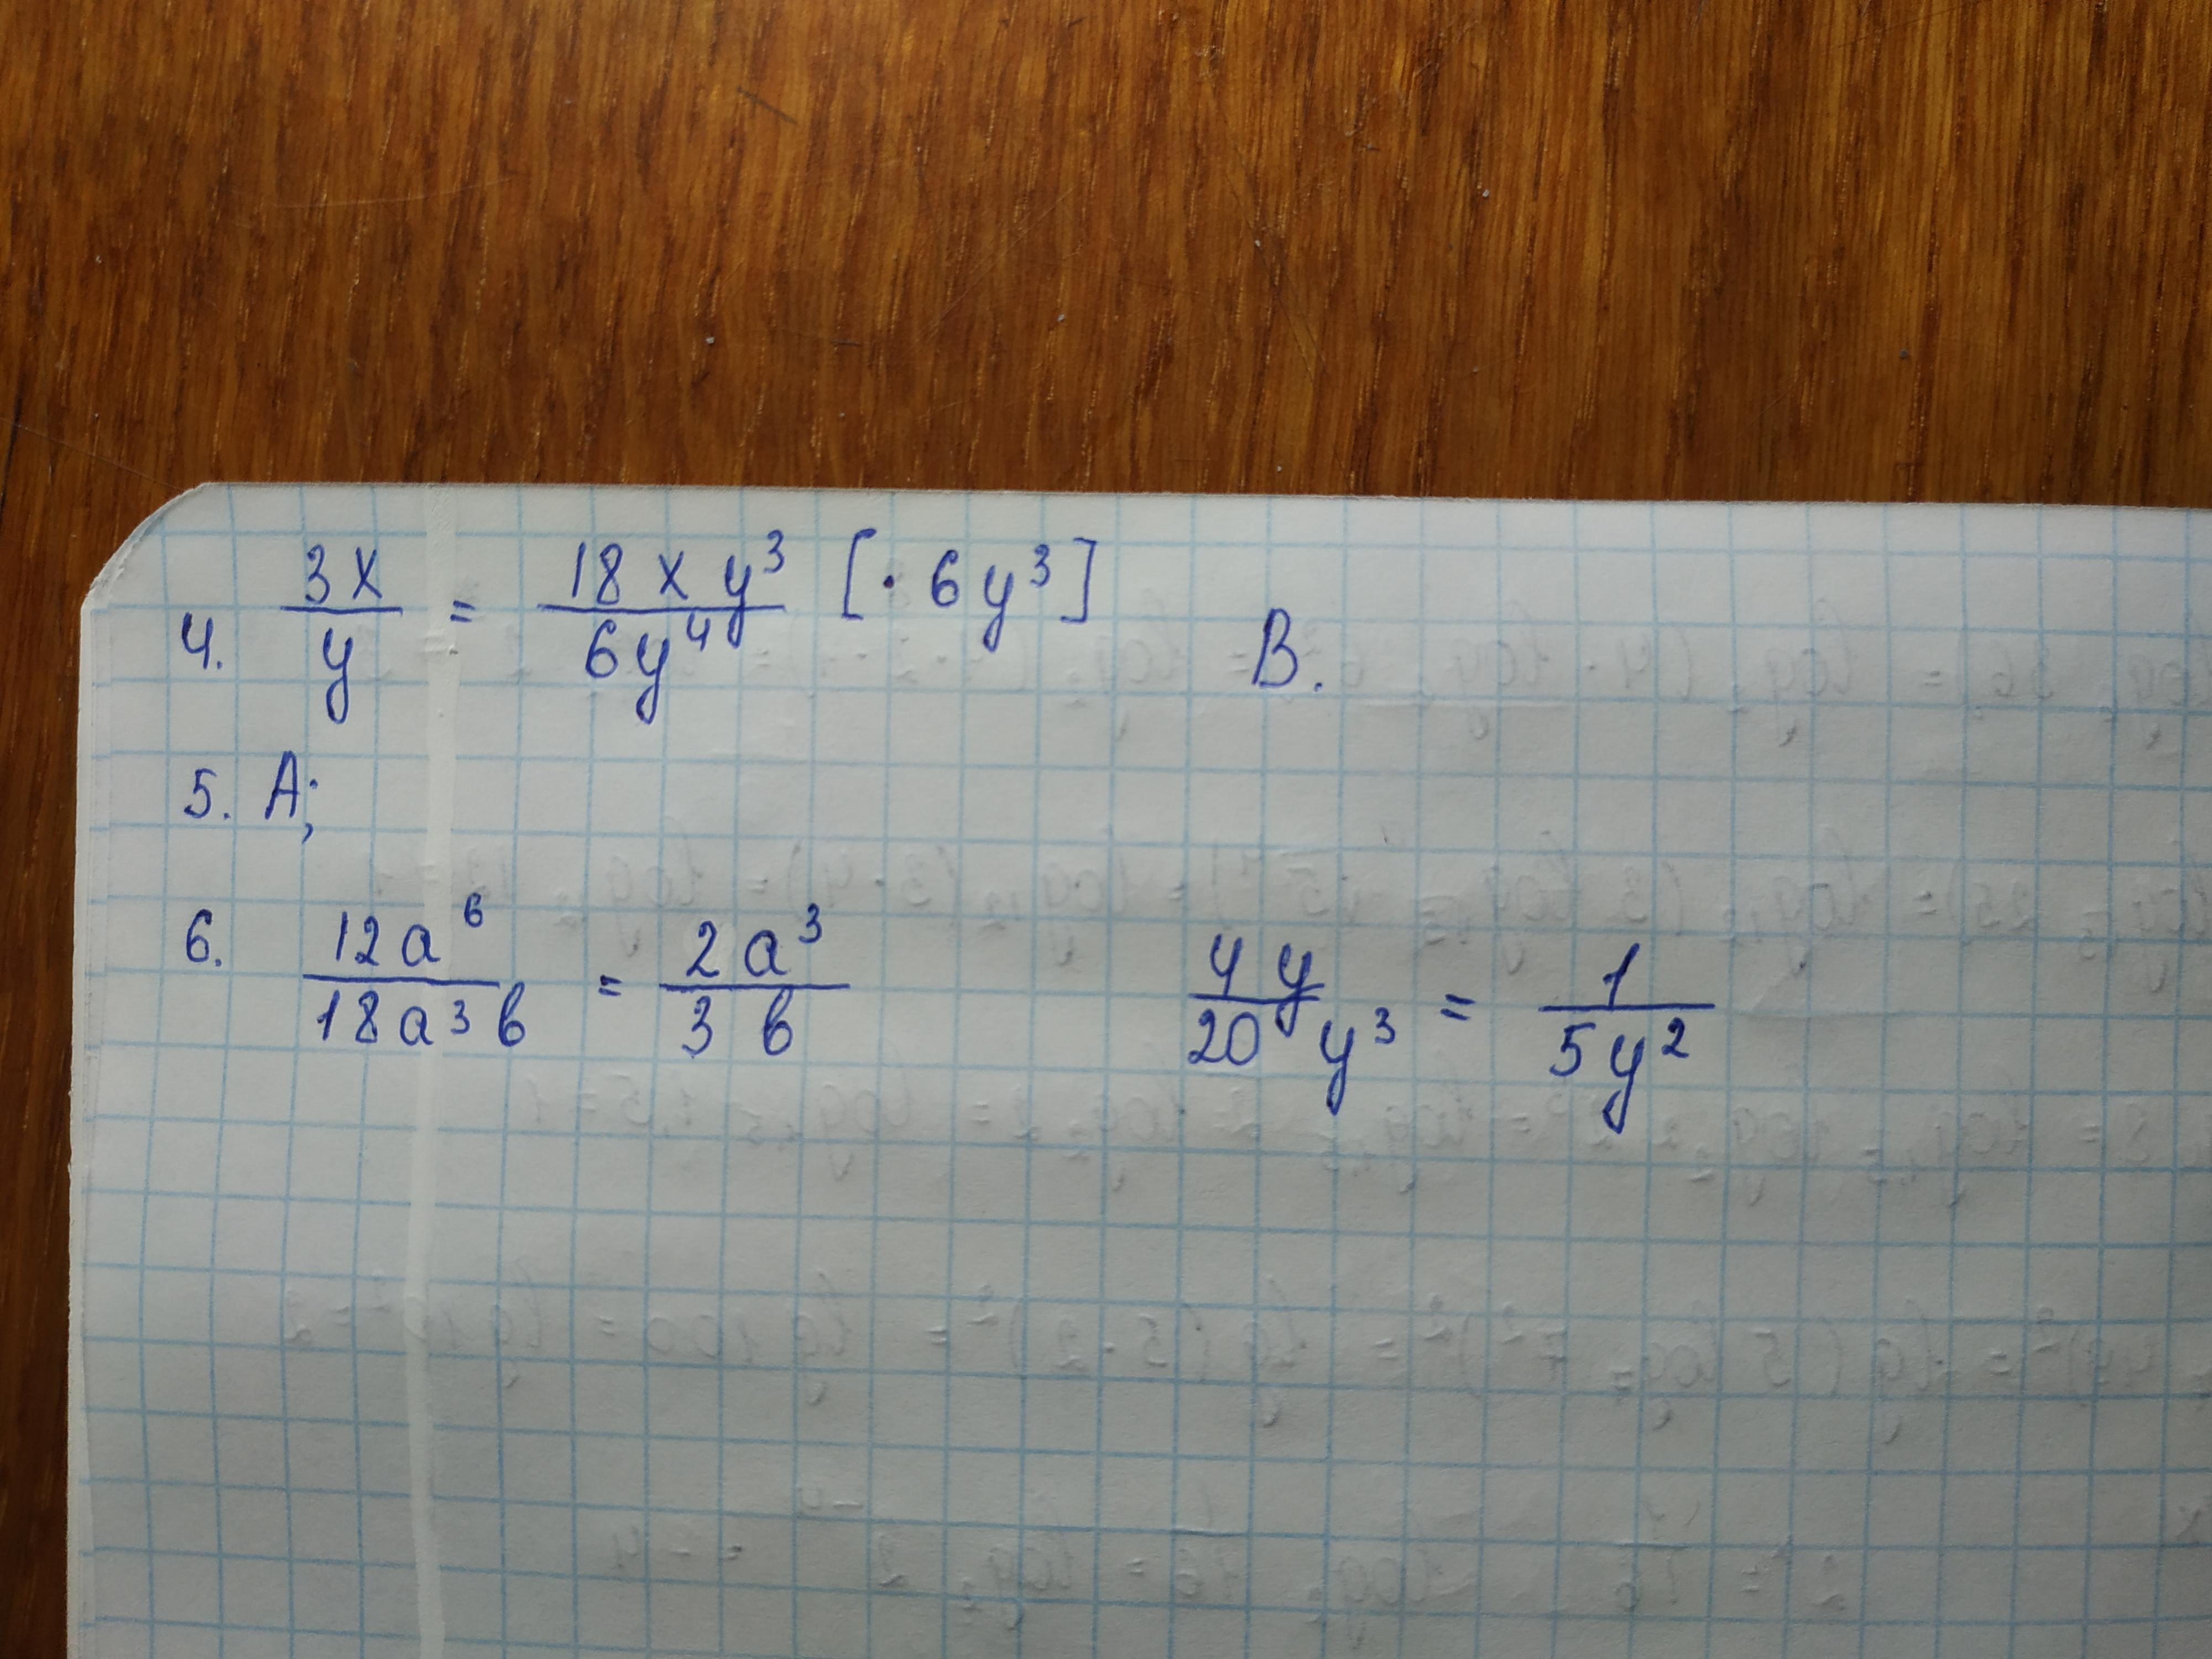 4. 3x/y = 18xy³/6y⁴ [· 6y³] B.
5. A;
6. 12a⁶/18a³b = 2a³/3b 4y/20y³ = 1/5y²